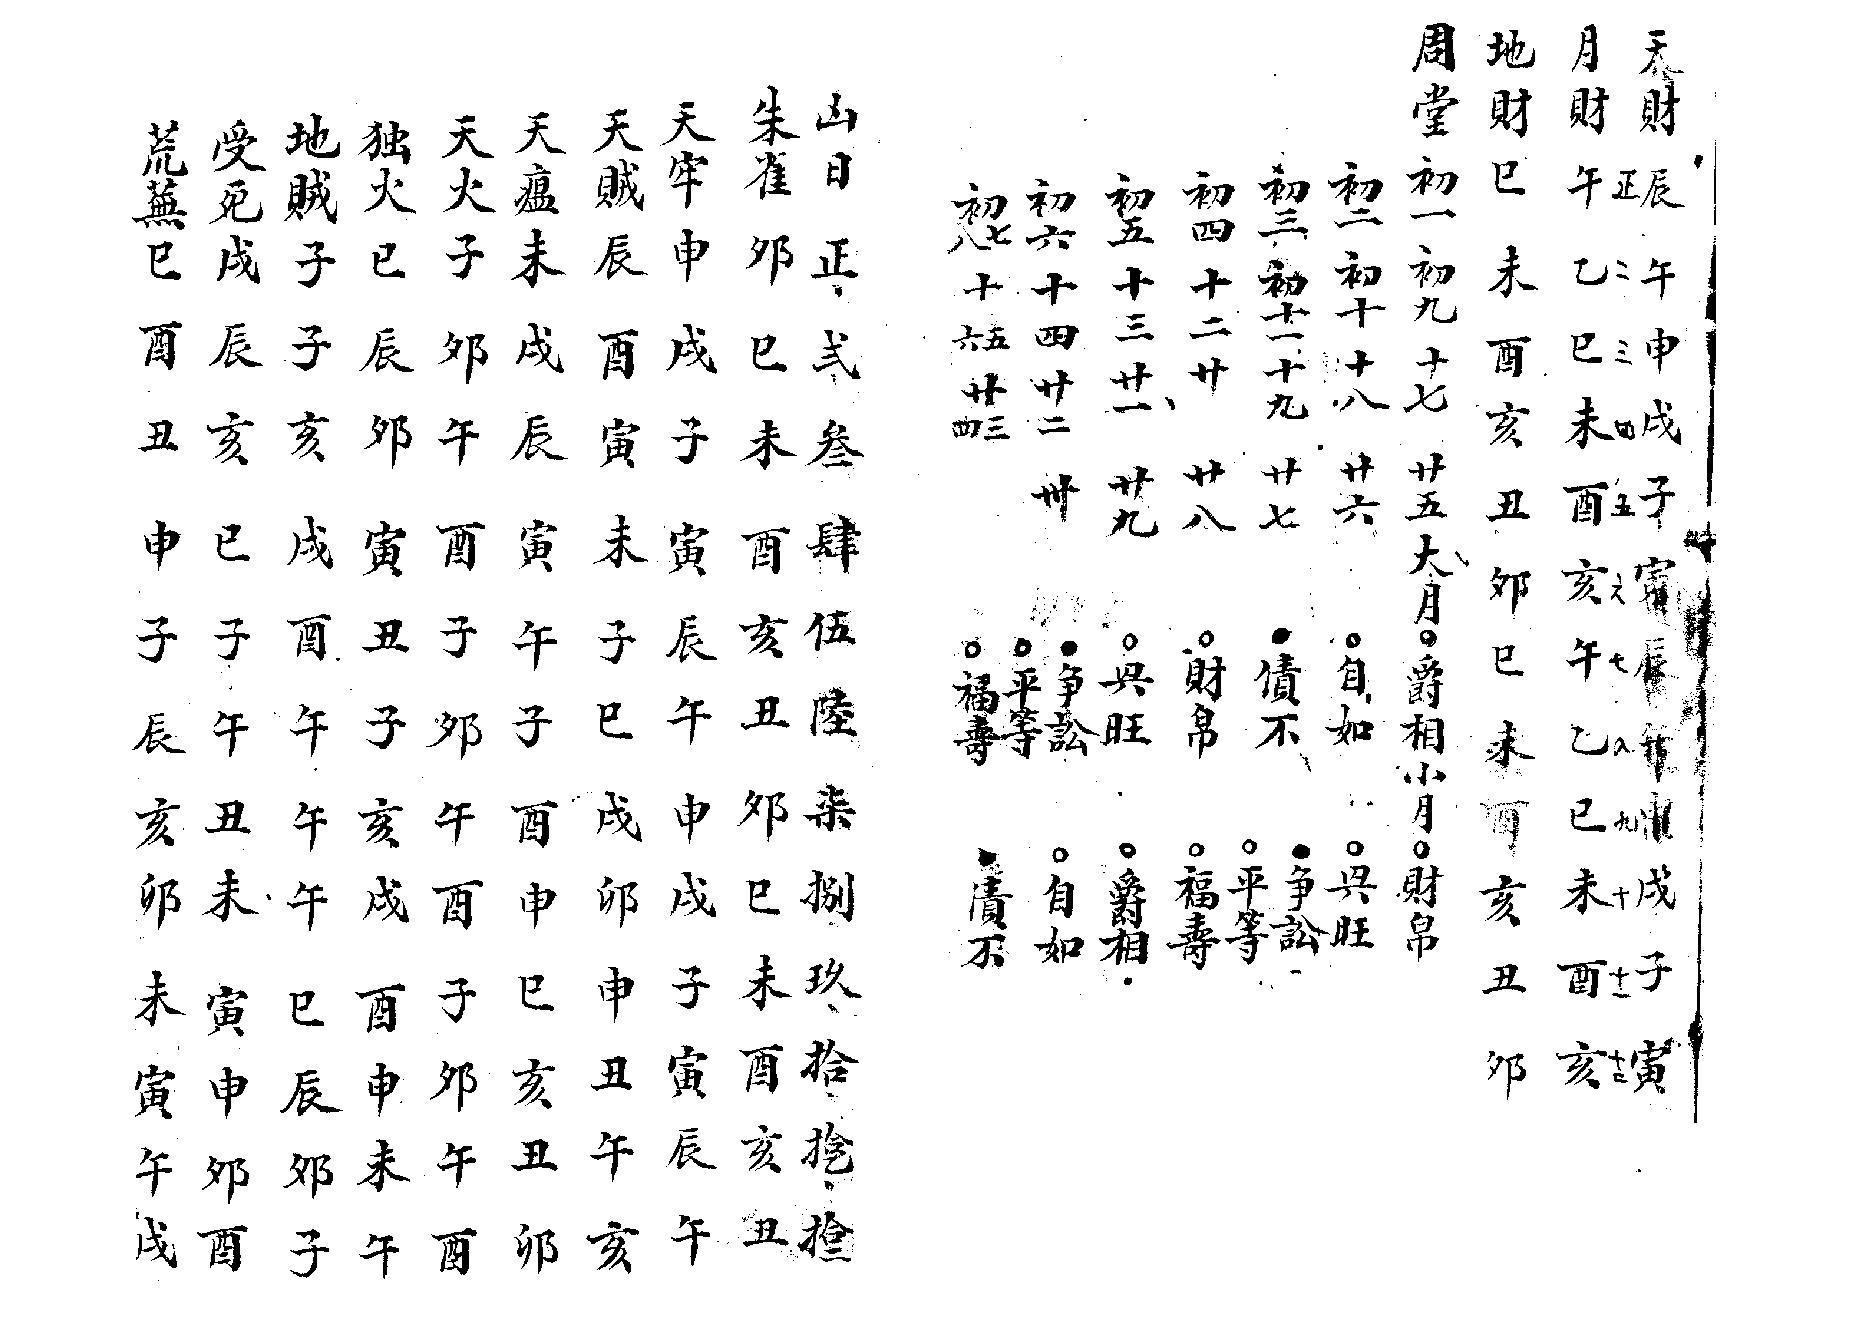 天財辰午申戌子寅辰戌子寅
正二三四五六七八九十十一十二
月財午乙巳未酉亥午乙巳未酉亥
地財巳未酉亥丑卯巳未酉亥丑卯
周堂初一初九十七廿五大月○爵相小月○財帛
初二初十十八廿六○自如○呉旺
初三初十一十九廿七●債不●争訟○平等
初四十二廿廿八○財帛○福壽
初五十三廿一廿九○呉旺○爵相
初六十四廿二卅●争訟●平等○自如
初七八十五六廿三四○福壽●債不
凶日正弍叁肆伍陸柒捌玖拾拾一拾二
朱雀卯巳未酉亥丑卯巳未酉亥丑
天牢申戌子寅辰午申戌子寅辰午
天賊辰酉寅未子巳戌卯申丑午亥
天瘟未戌辰寅午子酉申巳亥丑卯
天火子卯午酉子卯午酉子卯午酉
独火巳辰卯寅丑子亥戌酉申未午
地賊子子亥戌酉午午午巳辰卯子
受死戌辰亥巳子午丑未寅申卯酉
荒蕪巳酉丑申子辰亥卯未寅午戌